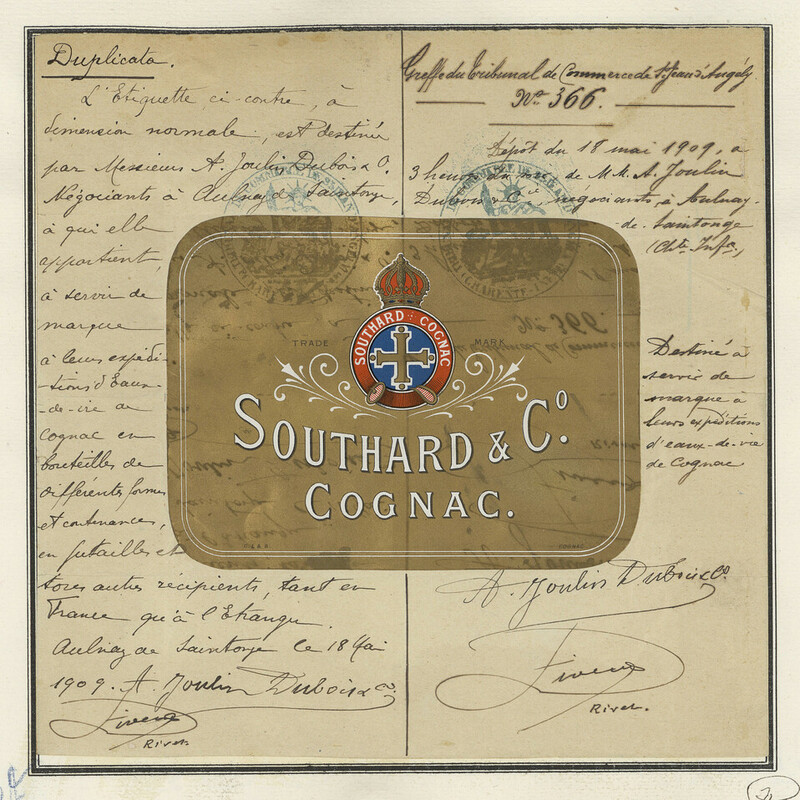 Duplicata.
L'Etiquette ci-contre, à
dimension normale, est destinée
par Messieurs A. Joulin Dubois & Co.
Négociants à Aulnay de Saintonge,
à qui elle
appartient,
à servir de
marque
à leurs expédi-
-tions d'Eaux-
-de-vie de
Cognac en
bouteilles de
différentes formes
et contenances,
en futailles et
tous autres récipients, tant en
France qu'à l'Etranger.
Aulnay de Saintonge le 18 Mai
1909. A. Joulin Dubois & Co
Rivet
Greffe du Tribunal de Commerce de St Jean d'Angély
No 366.
Dépôt du 18 mai 1909, à
3 heures de MM. A. Joulin
Dubois & Cie, négociants, à Aulnay-
-de-Saintonge
(Chte Infre)
Destiné à
servir de
marque à
leurs expéditions
d'eaux-de-vie
de Cognac
A. Joulin Dubois & Co
Rivet.
SOUTHARD COGNAC
TRADE MARK
SOUTHARD & Co.
COGNAC.